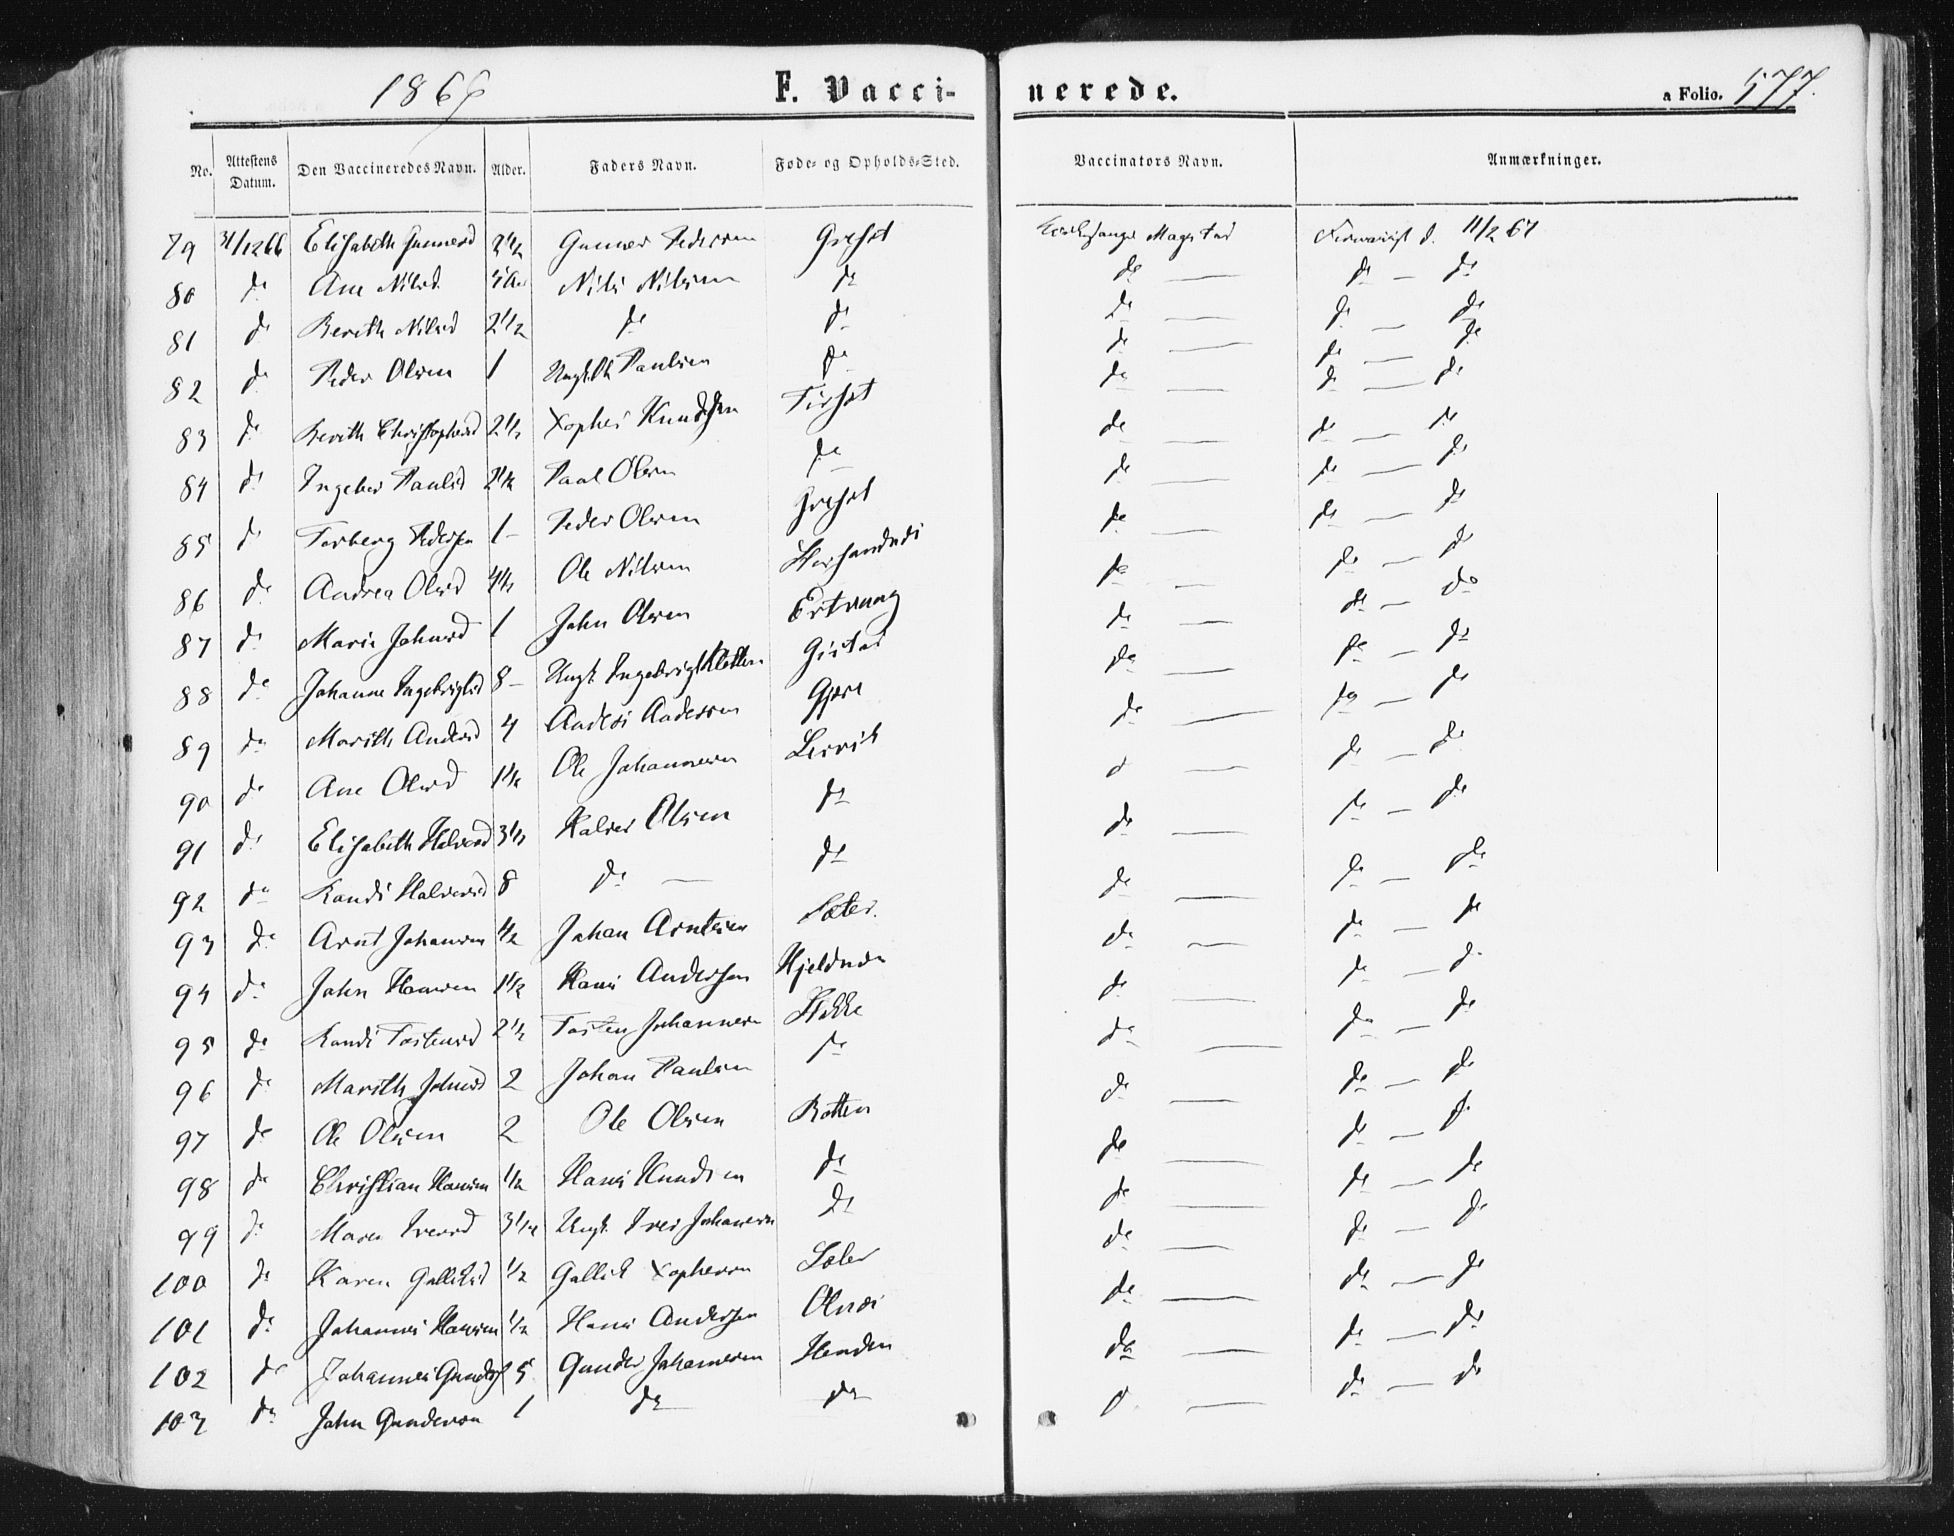 1866 F. Vacci- nerede. a Folio. 577.
No. Attestens Datum. Den Vaccineredes Navn. Alder. Faders Navn. Føde- og Opholds-Sted. Vaccinators Navn. Anmærkninger.
79 31/12 66 Elisabeth Gunnersd 2 1/2 Gunner Pedersen 11/2 67
80 do Ane Nilsd Nils Nilsen do do — do — do
81 do Berith Nilsd 2 1/2 do do do — do — do
82 do Peder Olsen 1 Paulsen do do — do — do
83 do Berith Christophersd 2 1/2 Xopher Knudsen do — do — do
84 do Ingebor Paulsd 2 1/2 Paal Olsen do do — do — do
85 do Torberg Pedersen 1 – Peder Olsen do — do — do
86 do Andrea Olsd 4 1/2 Ole Nilsen do — do — do
87 do Marie Johnsd 1 John Olsen Ertvaag do — do — do
88 do Johanne Ingebrigtsd 8 – Ungk. Ingebrigt Gistad do — do — do
89 do Marith Andersd 4 Anders Andersen Gjera do — do — do
90 do Ane Olsd 1 1/2 Ole Johannesen Lervik d — do — do
91 do Elisabeth Halvorsd 3 1/2 Halvor Olsen do do — do — do
92 do Randi Halvorsd 8 do — do do — do — do
93 do Arnt Johansen 1/2 Johan Arntsen Sæter. do — do — do
94 do John Hansen 1 1/2 Hans Andersen do — do — do
95 do Randi Tostensd 2 1/2 Tosten Johannesen do — do — do
96 do Marith Johnsd 2 Johan Paulsen do do — do — do
97 do Ole Olsen 2 Ole Olsen Rotten do — do — do
98 do Christian Hansen 1/2 Hans Knudsen do do — do — do
99 do Maren Iversd 3 1/4 Ungk. Iver Johansen do do — do — do
100 do Karen Gulliksd 1/2 Gullik Xophersen do — do — do
101 do Johannes Hansen 1/2 Hans Andersen do — do — do
102 do Johannes Gunders 5 Gunder Johannesen Henden do — do — do
103 do John Gundersen 1 do do d —